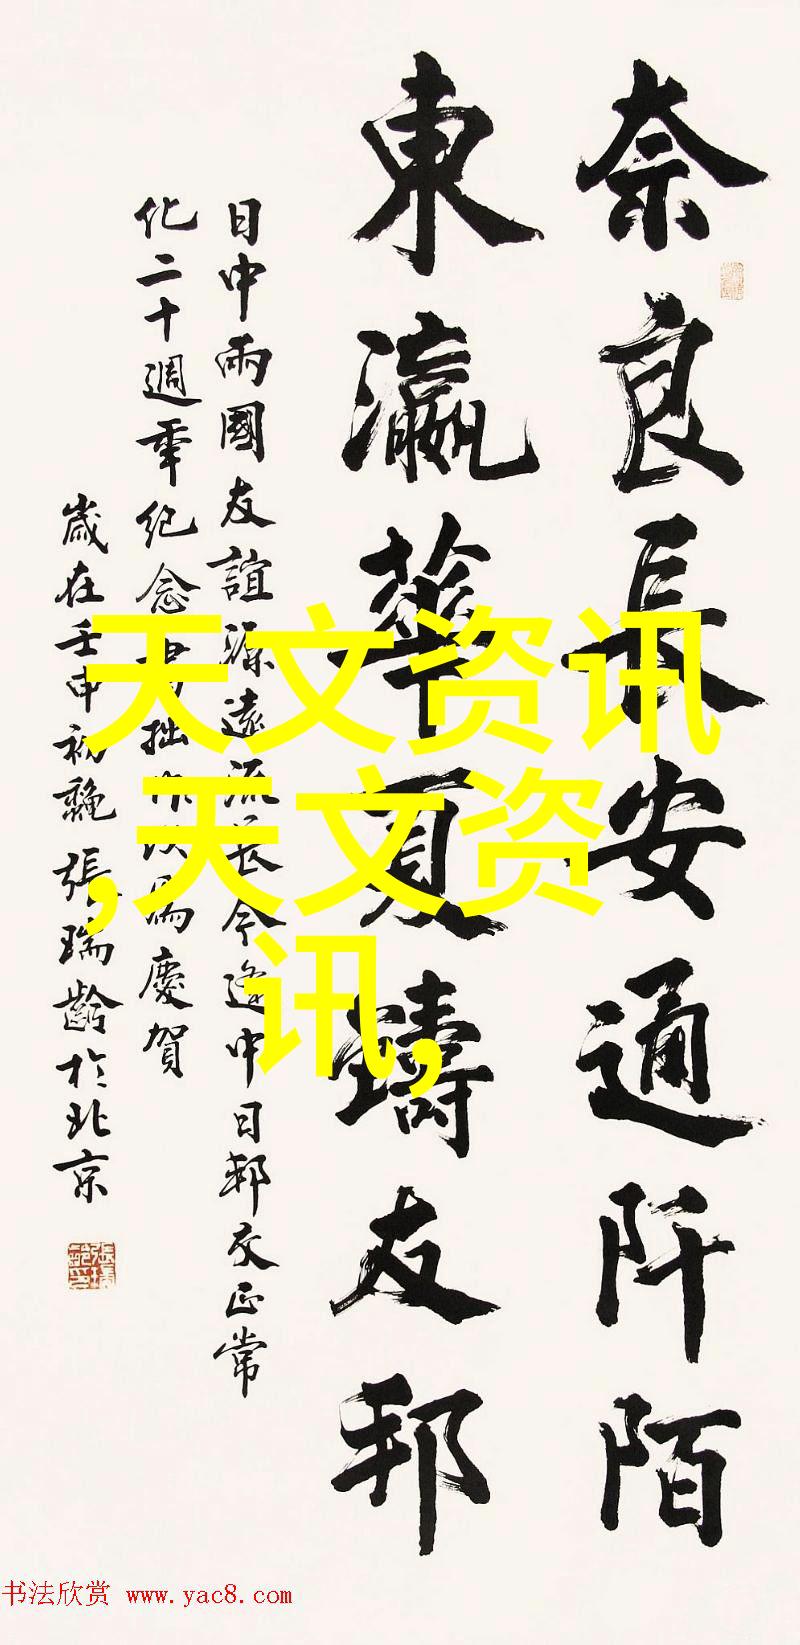 奈良長安通阡陌
東瀛華夏鑄友邦
日中兩國友誼源遠流長今逢中日邦交正常
化二十週年紀念書拙作以為慶賀
歲在壬申初 張瑞齡於北京
天文资讯
,天文资
讯,
书法欣赏 www.yac8.com